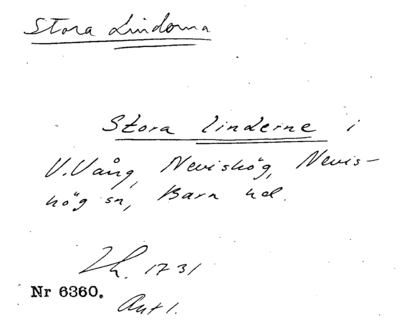 Stora Lindorna
Stora Linderne i
V.Vång, Nevishög, Nevis-
hög sn, Bara hd.
Lh. 1731
Nr 6360.
Ant 1.